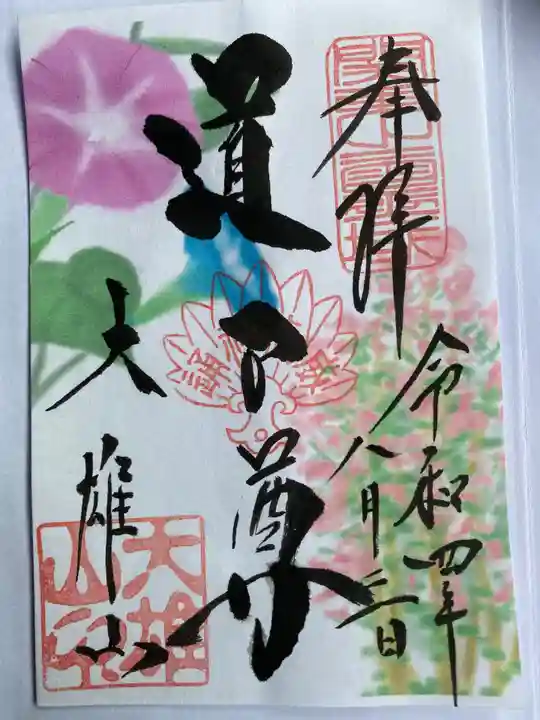 奉拝
令和四年
八月三日
道了尊
大雄山
大雄
山印